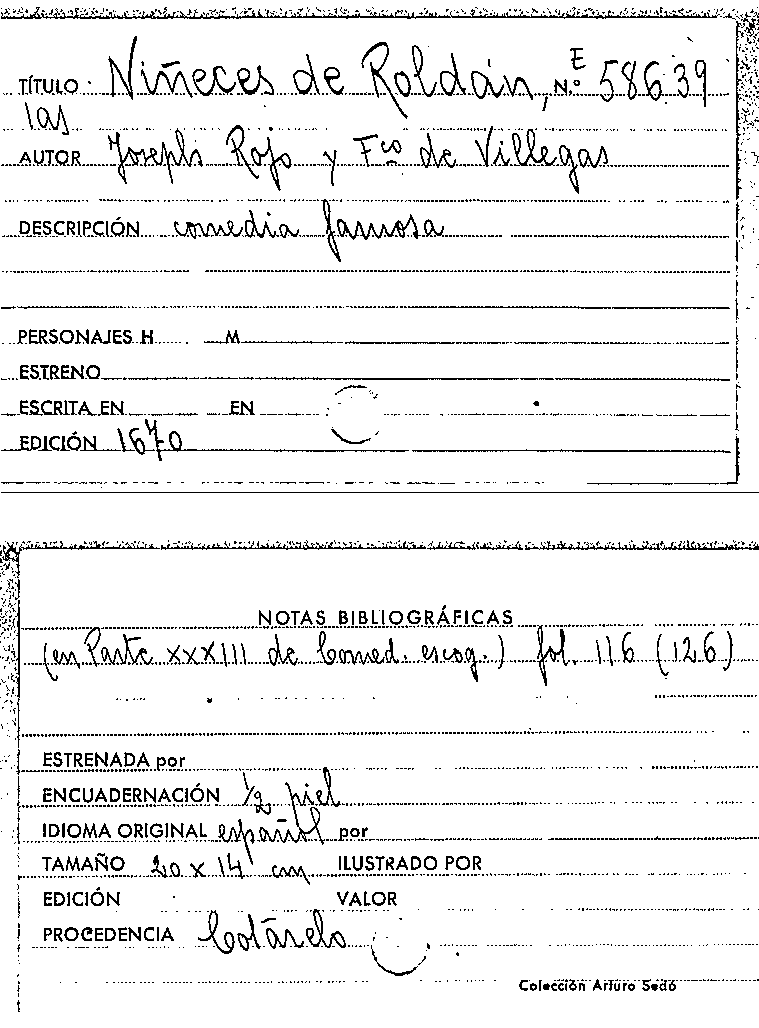 TÍTULO Niñeces de Roldán, N.º E 58639
las
AUTOR Joseph Rojo y Fco de Villegas
DESCRIPCIÓN comedia famosa
PERSONAJES H M
ESTRENO
ESCRITA EN EN
EDICIÓN 1670
NOTAS BIBLIOGRÁFICAS
(en Parte XXXIII de Comed. escog.) fol. 116 (126)
ESTRENADA por
ENCUADERNACIÓN 1/2 piel
IDIOMA ORIGINAL español por
TAMAÑO 20 x 14 cm ILUSTRADO POR
EDICIÓN VALOR
PROCEDENCIA Cotarelo
Colección Arturo Sedó